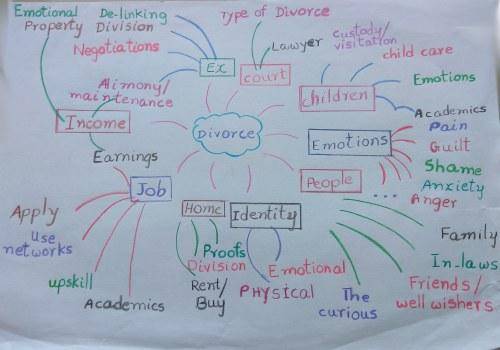 Emotional
De-linking
Type of Divorce
Property Division
Negotiations
Lawyer
Custody/
visitation
child care
Ex
court
Emotions
Alimony/
maintenance
children
Academics
Income
Divorce
Emotions
Pain
Guilt
Shame
Anxiety
Anger
Earnings
People
...
Job
Home
Identity
Apply
Use
networks
upskill
Academics
Proofs
Division
Rent/
Buy
Emotional
Physical
The
curious
Family
In-laws
Friends/
well wishers